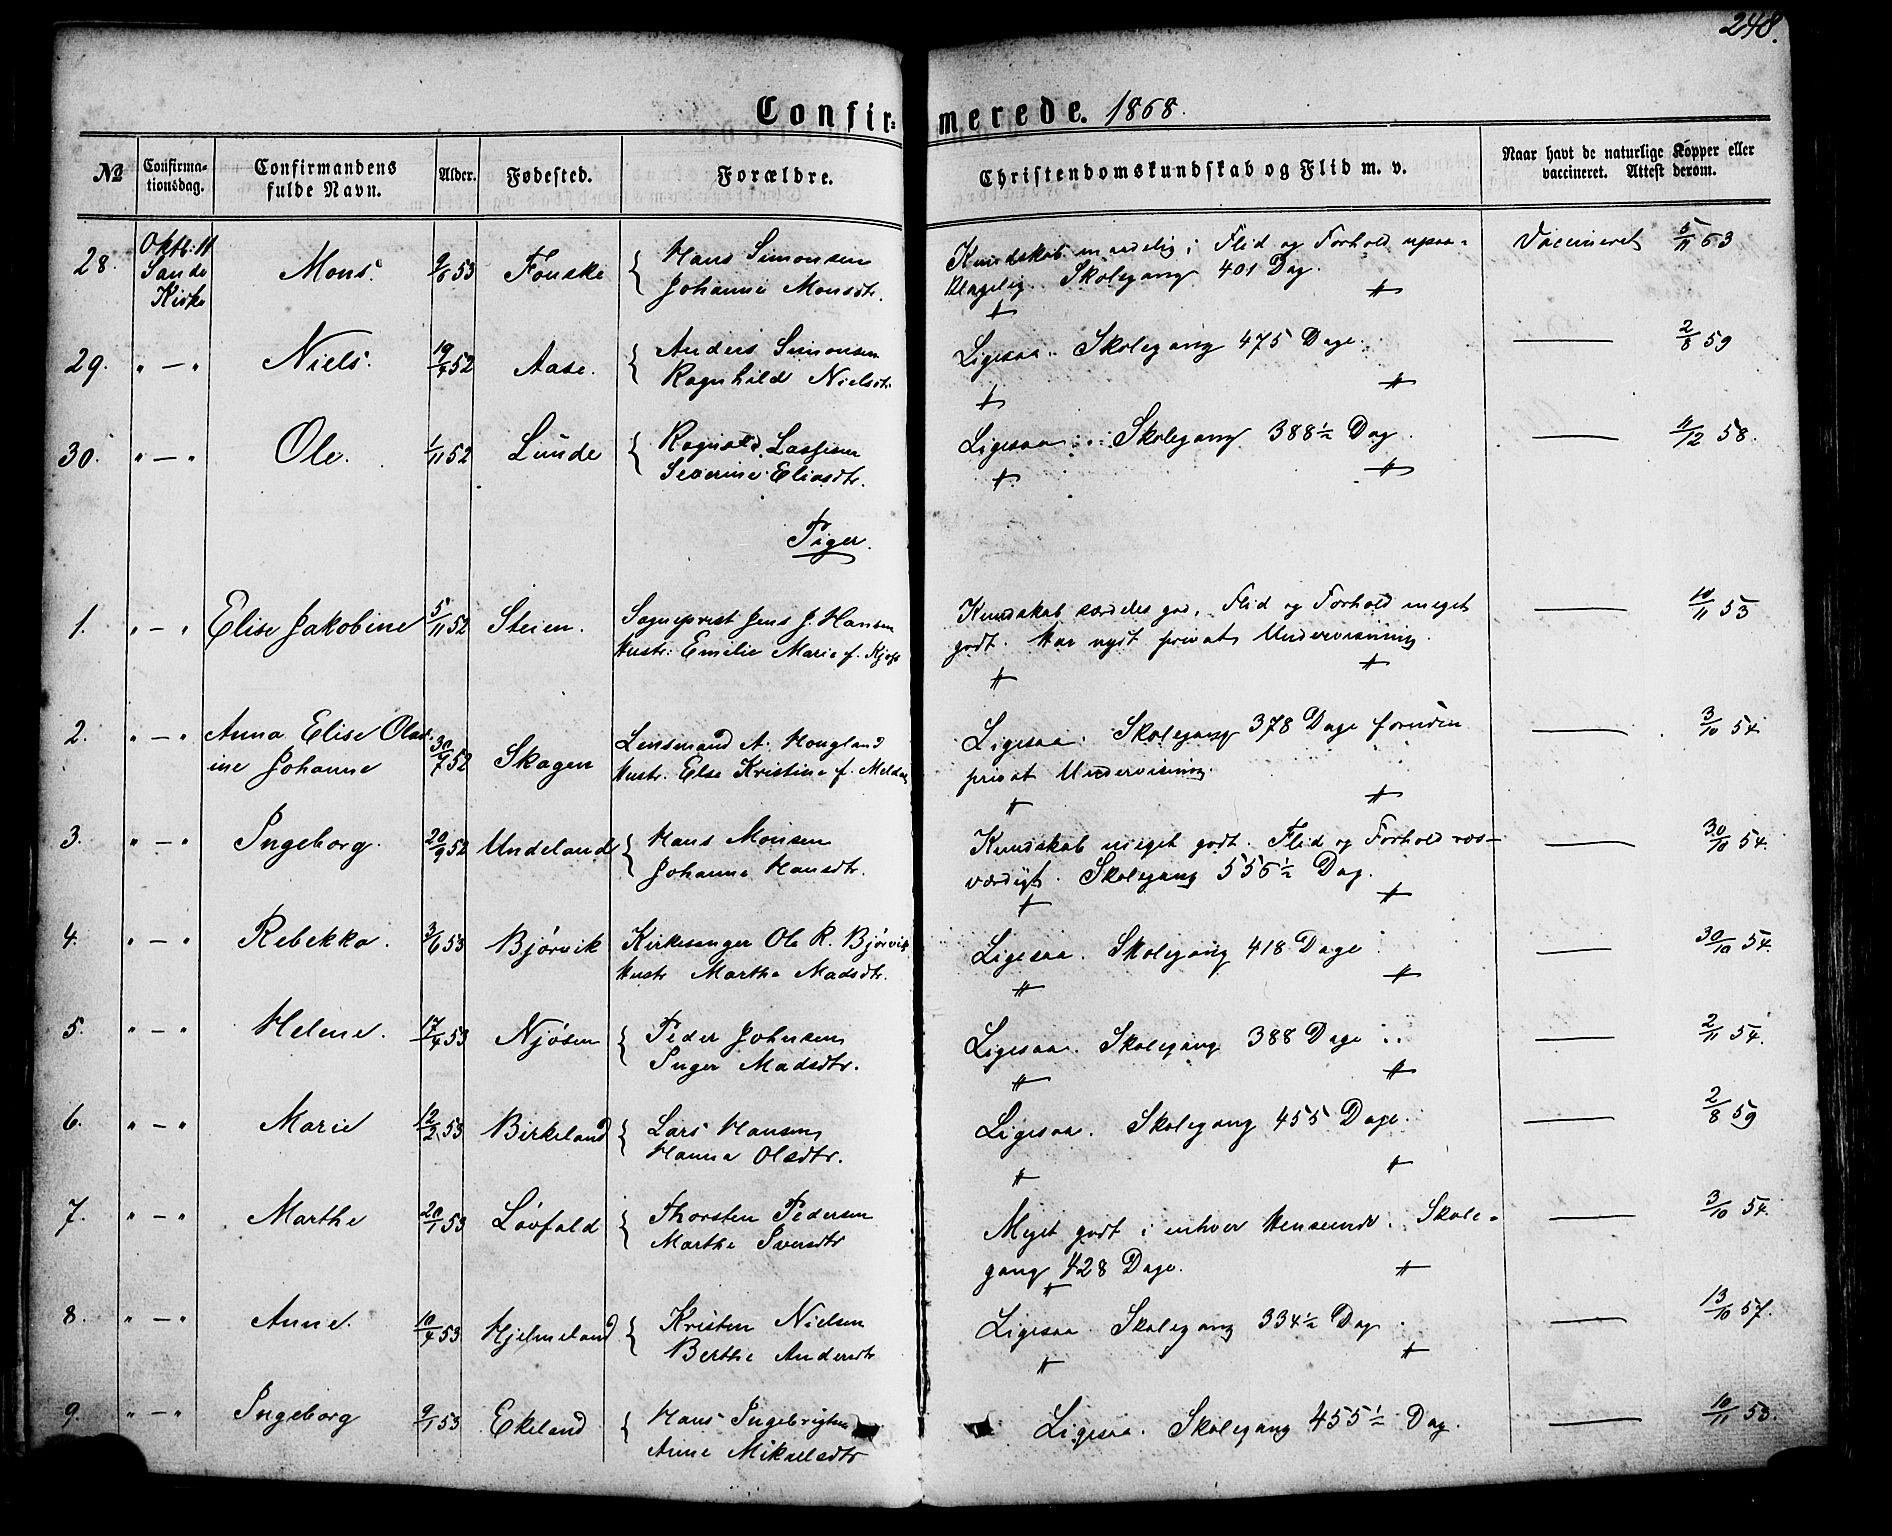 248.
Confir= merede. 1868.
№ Confirma-tionsdag. Confirmandens fulde Navn. Alder. Fødested. Forældre. Christendomskundskab og Flid m. v. Naar havt de naturlige Kopper eller vaccineret. Attest derom.
28. Oktb: 11 Sande Kirke Mons. 9/6 53 Fonske { Hans Simonsen Kundskab maadelig; Flid og Forhold upaa- Vaccineret 5/11 63
Johanne Monsdtr. klagelig. Skolegang 401 Dag.
29. " — " Niels. 19/4 52 Aase. { Anders Simonsen Ligesaa. Skolegang 475 Dage. — 2/8 59
Ragnhild Nielsdtr.
30. " — " Ole. 1/11 52 Lunde { Ragnald Lassesen Ligesaa. Skolegang 388½ Dag. — 11/12 58.
Severine Eliasdtr.
Piger.
1. " — " Elise Jakobine 5/11 52 Steien. Sogneprest Jens J. Hansen Kundskab særdeles god, Flid og Forhold meget — 10/11 53
Hustr: Emelie Marie f. godt. Har nydt privat Undervisning.
2. " — " Anna Elise Olad- 30/7 52 Skagen Lensmand A. Hougland Ligesaa. Skolegang 378 Dage foruden — 3/10 54
ine Johanne Hustr. Else Kristine f. privat Undervisning.
3. " — " Ingeborg. 20/9 52 Undeland { Hans Monsen Kundskab meget godt. Flid og Forhold ros- — 30/10 54.
Johanne Hansdtr. værdigt. Skolegang 556½ Dag.
4. " — " Rebekka. 3/6 53 Bjørvik Kirkesanger Ole R. Bjørvik Ligesaa. Skolegang 418 Dage — 30/10 54.
Hustr Marthe Madsdtr.
5. " — " Helene. 17/4 53 Njøsen { Peder Johnsen Ligesaa. Skolegang 388 Dage — 2/11 54.
Inger Madsdtr.
6. " — " Marie 12/2 53 Birkeland { Lars Hansen Ligesaa. Skolegang 455 Dage. — 2/8 59
Hanna Olsdtr.
7. " — " Marthe 20/1 53 Løvfald { Thorsten Pedersen Meget godt i enhver Henseende. Skole- — 3/10 54.
Marthe Iversdtr gang 428 Dage.
8. " — " Anne. 10/4 53 Hjelmeland { Kristen Nielsen Ligesaa. Skolegang 334½ Dag — 13/10 57.
Berthe Andersdtr
9. " — " Ingeborg 9/1 53 Ekeland { Hans Ingebrigtsen Ligesaa. Skolegang 455½ Dag. — 10/11 53.
Anne Mikaelsdtr